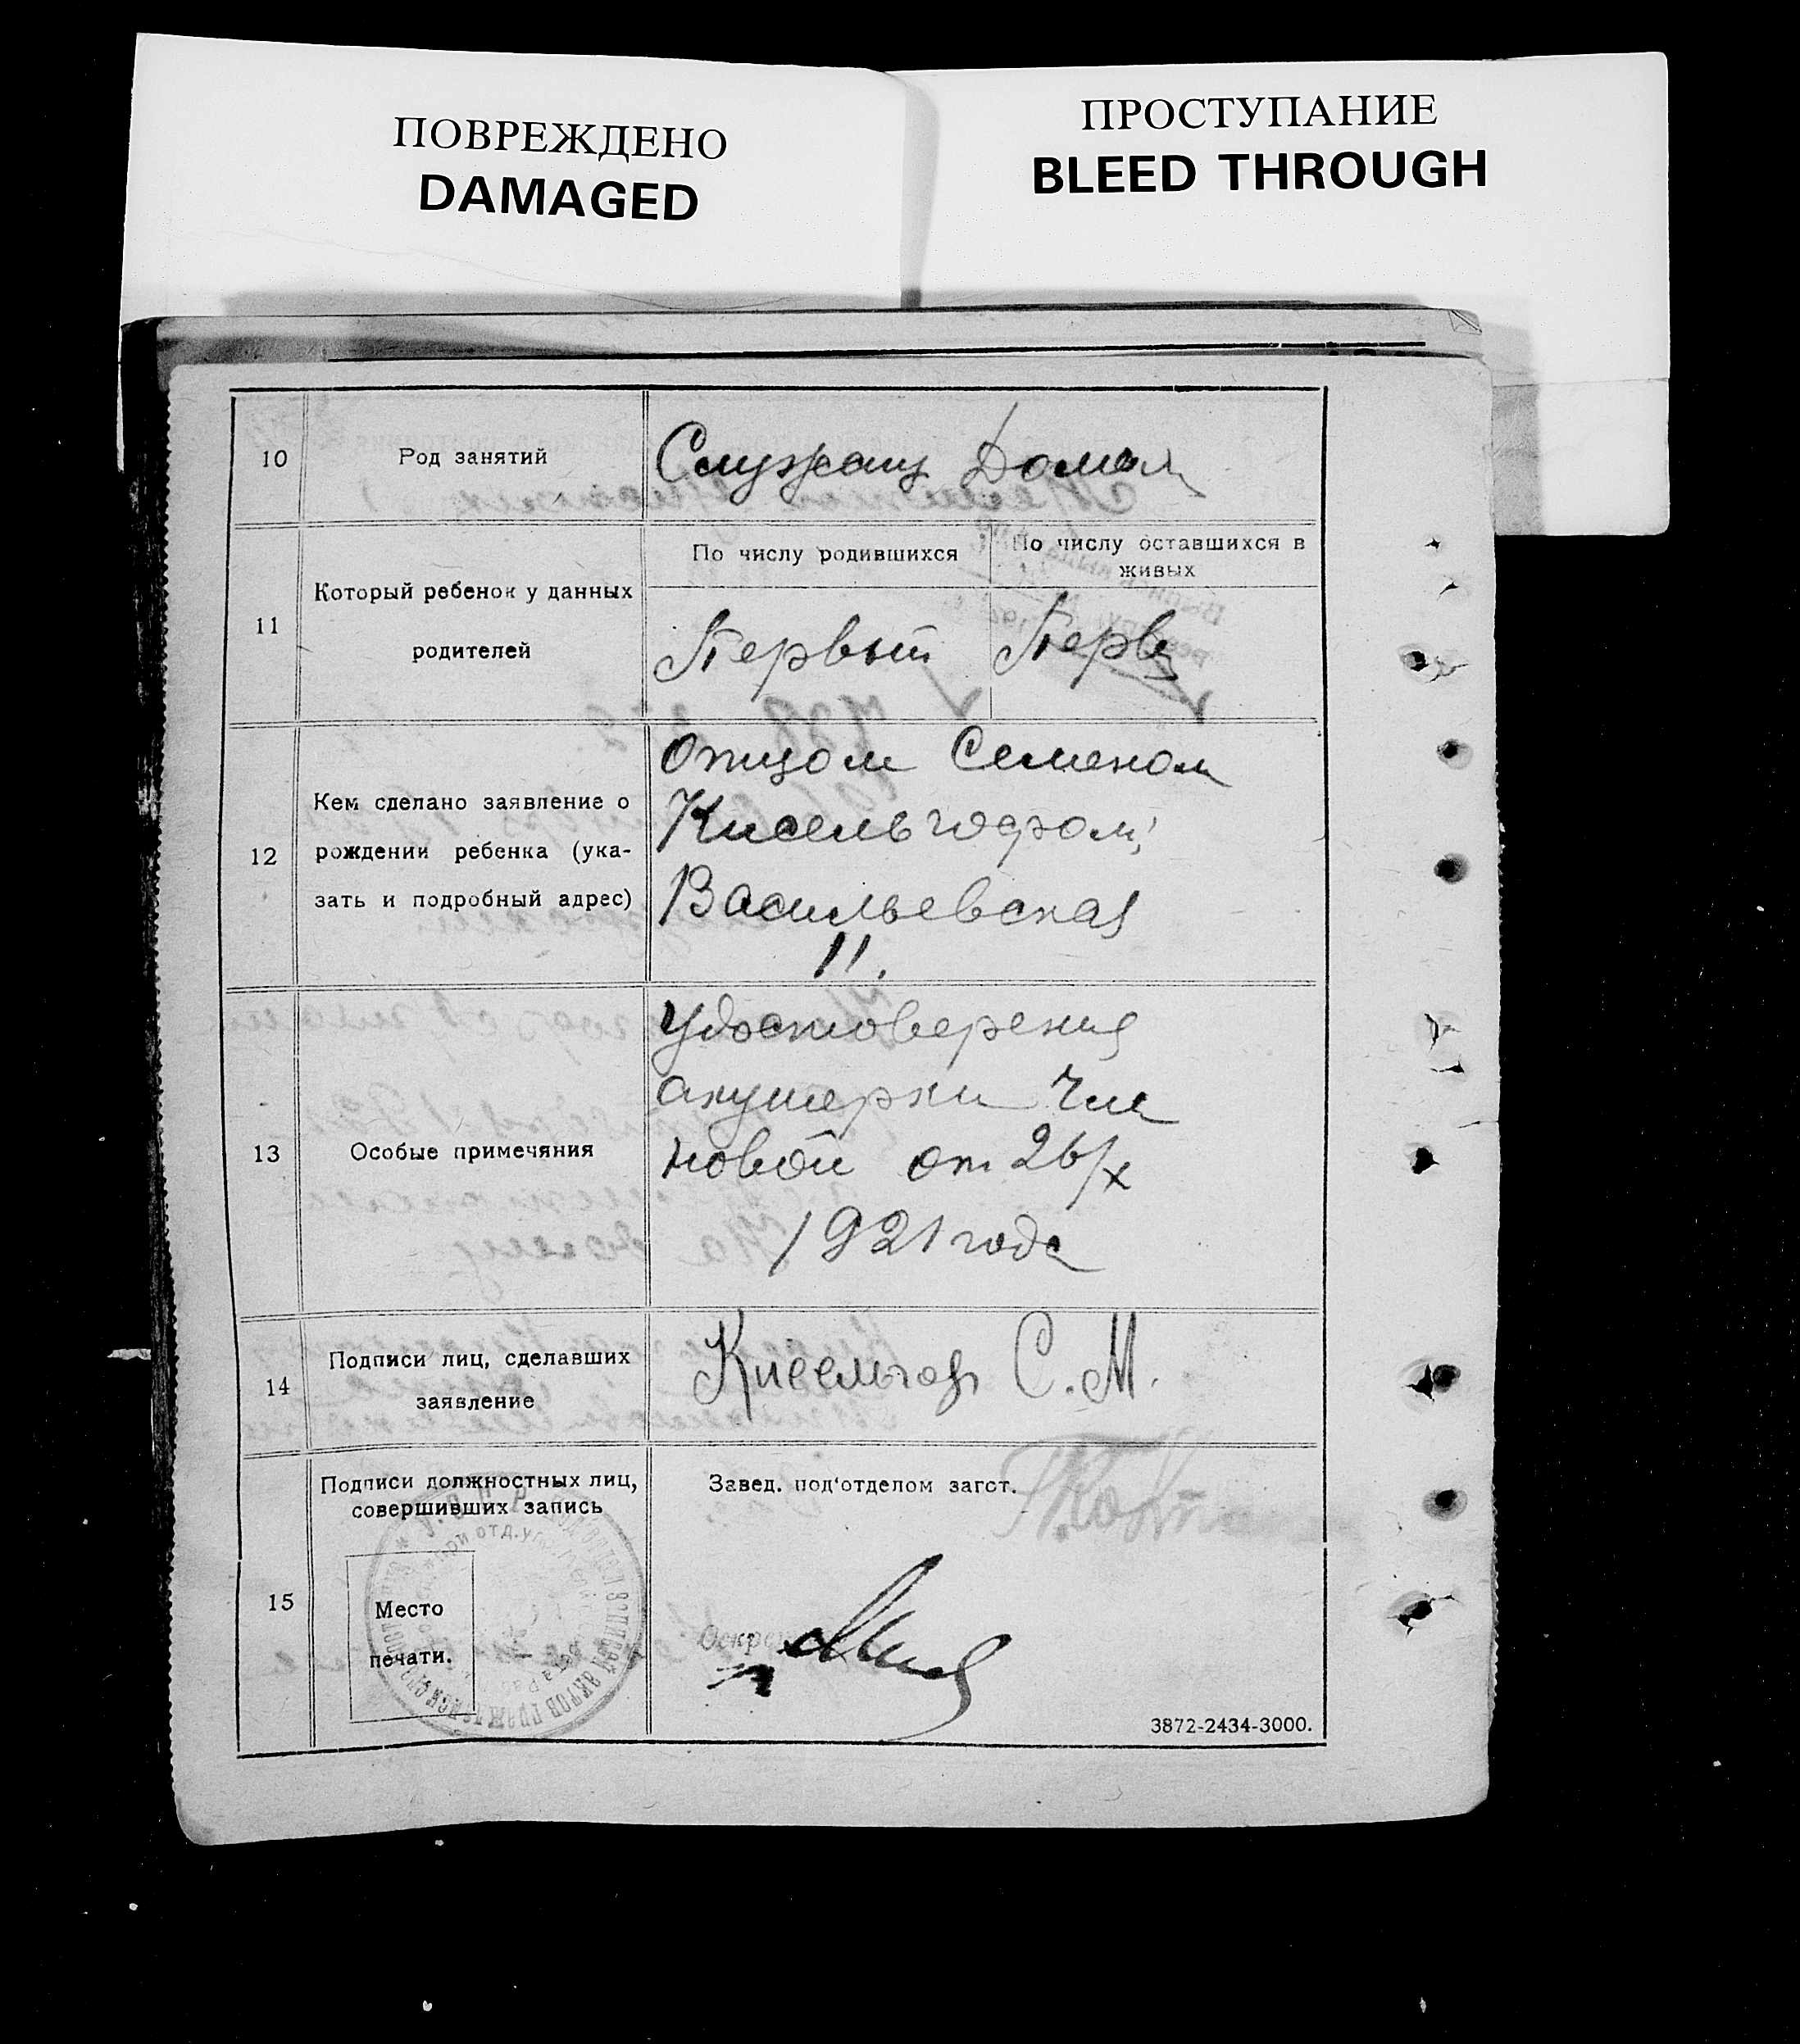 ПОВРЕЖДЕНО
DAMAGED
ПРОСТУПАНИЕ
BLEED THROUGH
10
Род занятий
Служащ Домаш
11
Который ребенок у данных
родителей
По числу родившихся
По числу оставшихся в
живых
Первый
Перв
12
Кем сделано заявление о
рождении ребенка (ука-
зать и подробный адрес)
Отцом Семеном
Кисельгофом,
Васильевская
11.
13
Особые примечяния
Удостоверения
акушерки Чле
новой от 26/X
1921 года
14
Подписи лиц, сделавших
заявление
Кисельгоф С.М.
15
Подписи должностных лиц,
совершивших запись
Место
печати.
Завед. под‘отделом загст.
3872-2434-3000.